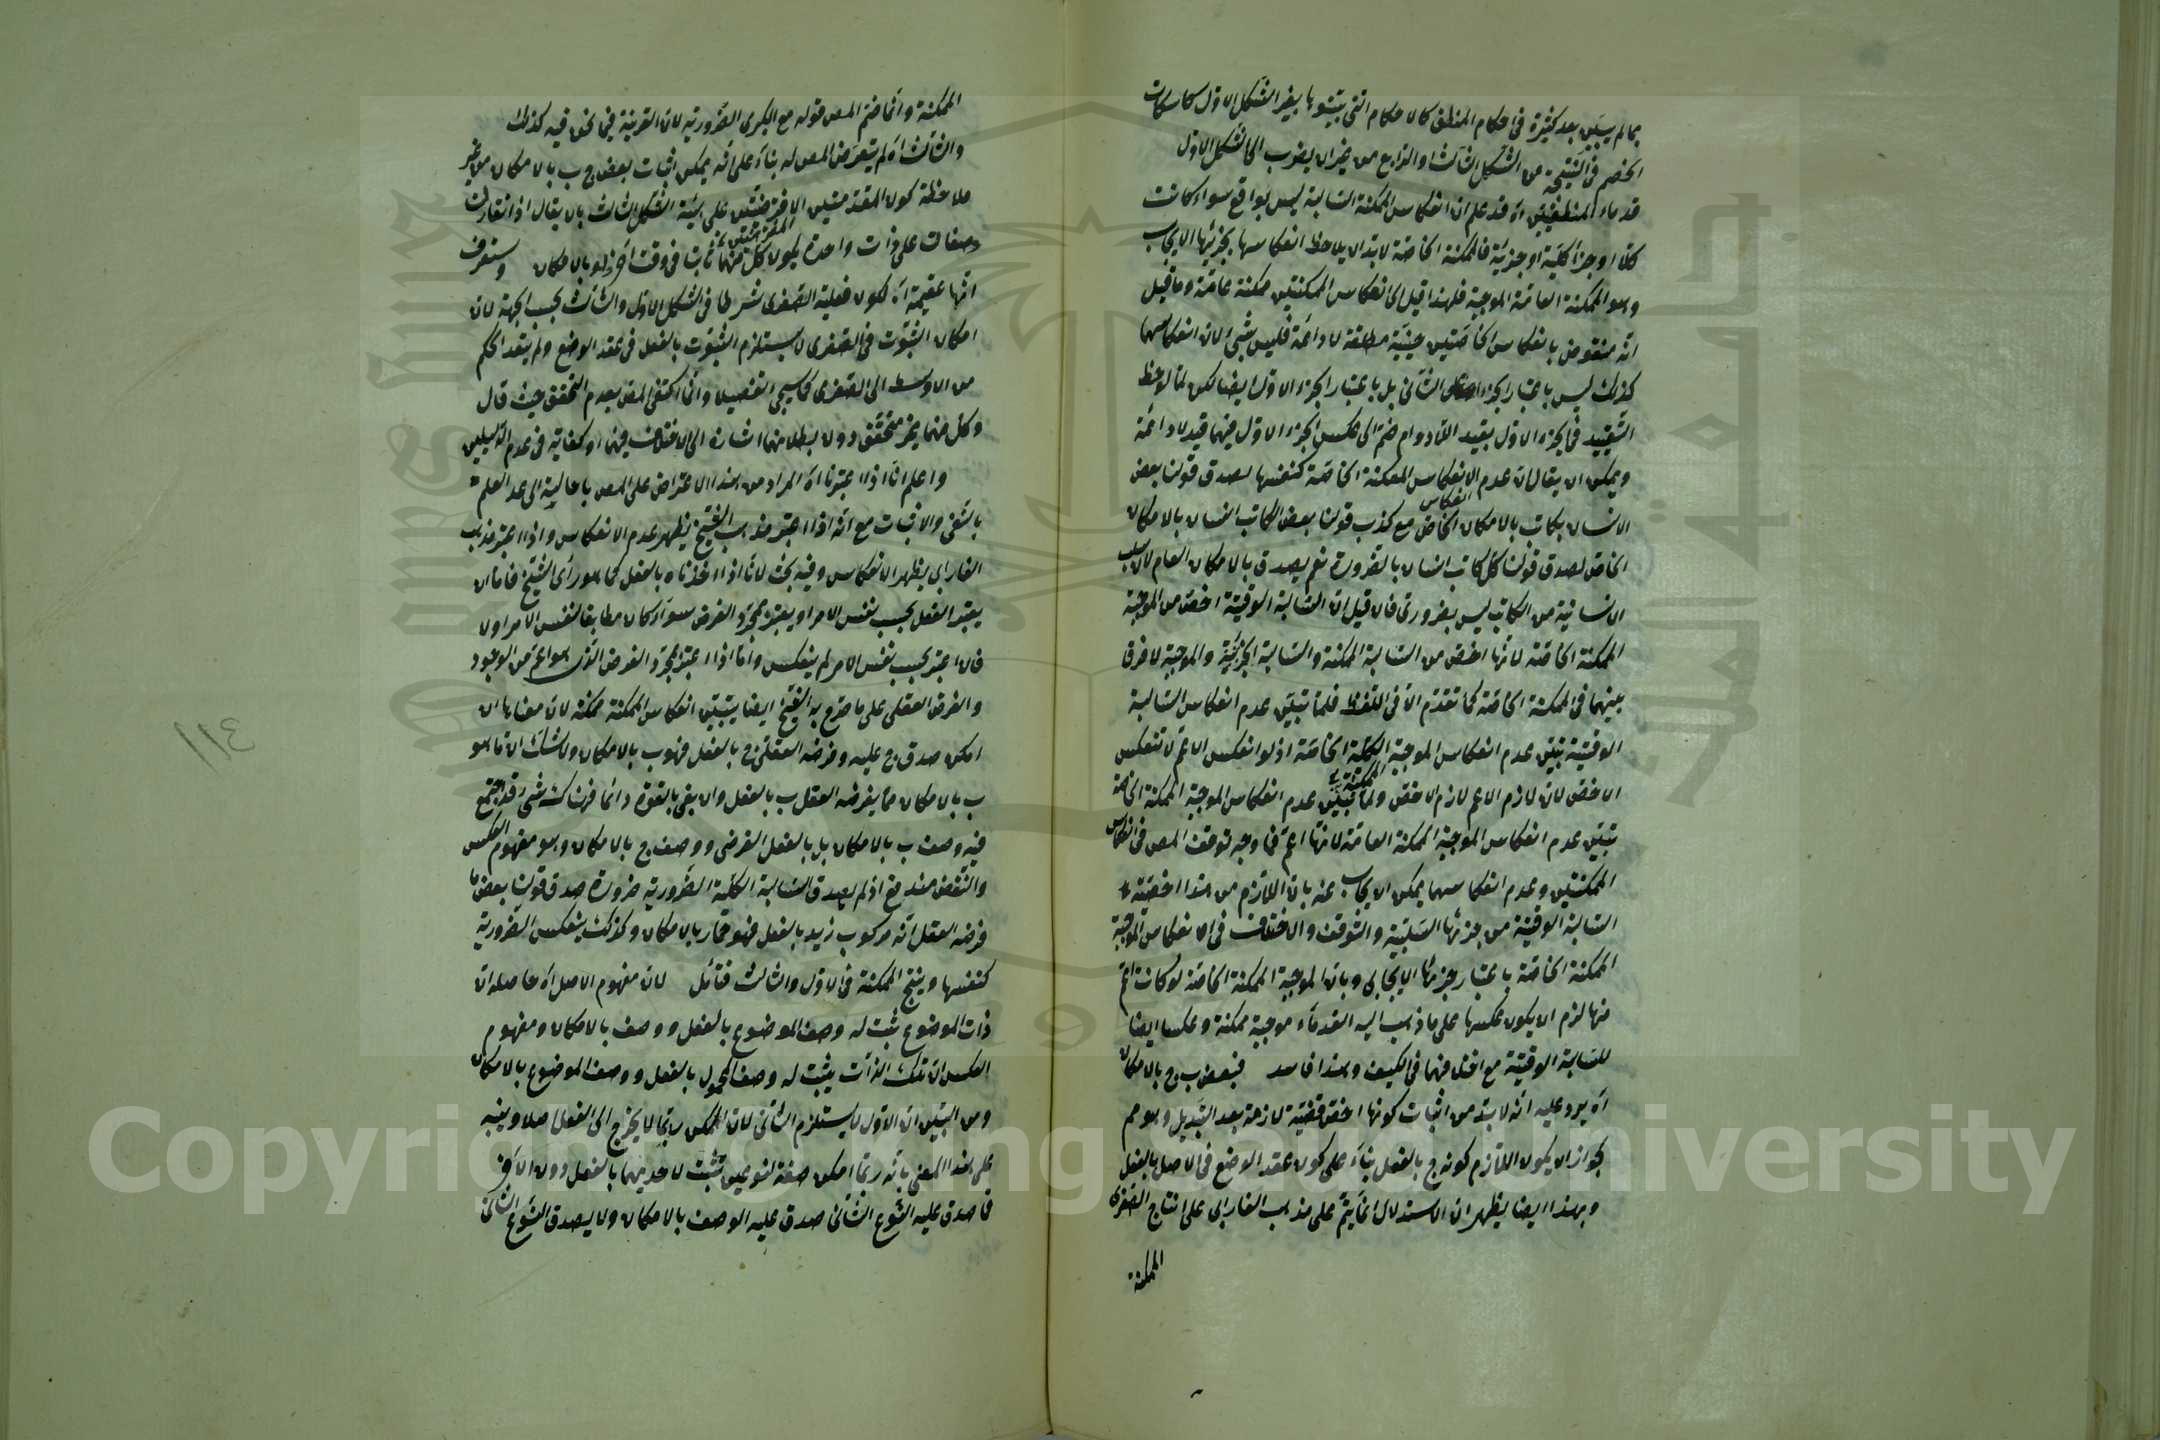 بما لم يبين بعد كثيرة في احكام المنطق كالاحكام التي يثبتوها بغير الشكل الاول
الخصم في النتيجة من الشكل الثالث او الرابع من غير ان يضرب الى الشكل الاول
قدماء المنطقيين اه قد علم ان انعكاس الممكنة السالبة ليس بواقع سواء كانت
كلا او جزأ كلية او جزئية فالممكنة الخاصة لا بد ان يلاحظ انعكاسها بجزئها الايجاب
وهو الممكنة العامة الموجبة فلهذا قيل ان انعكاس الممكنتين ممكنة عامة وما قيل
انه منقوض بانعكاس الخاصتين حينية مطلقة لا دائمة فليس بشئ لان انعكاسهما
كذلك ليس باعتبار الجزء الثاني بل باعتبار الجزء الاول ايضا لكن لما لوحظ
التقييد في الجزء الاول بقيد اللادوام ضم الى عكس الجزء الاول فيهما قيد لا دائمة
ويمكن ان يقال ان عدم الانعكاس الممكنة الخاصة كنفسها لصدق قولنا بعض
انعكاس
الانسان بكاتب بالامكان الخاص مع كذب قولنا بعض الكاتب انسان بالامكان
الخاص لصدق قولنا كل كاتب انسان بالضرورة نعم يصدق بالامكان العام لان سلب
الانسانية من الكاتب ليس بضروري فان قيل ان السالبة الوقتية اخص من الموجبة
الممكنة الخاصة لانها اخص من السالبة الممكنة والسالبة الجزئية والموجبة لا فرق
بينهما في الممكنة الخاصة كما تقدم الا في اللفظ فلما تبين عدم انعكاس السالبة
الوقتية تبين عدم انعكاس الموجبة الكلية الخاصة اذ لو انعكس الاعم لانعكس
الممكنة
الاخص لان لازم الاعم لازم الاخص ولما تبين عدم انعكاس الموجبة الممكنة الخاصة
تبين عدم انعكاس الموجبة الممكنة العامة لانها اعم فما وجه توقف المص في انعكاس
الممكنتين وعدم انعكاسهما يمكن ان يجاب عنه بان اللازم من هذا اخصية
السالبة الوقتية من جزئها السلبية والتوقف والاختلاف في انعكاس الموجبة
الممكنة الخاصة باعتبار جزئها الايجابي وبان الموجبة الممكنة الخاصة لو كانت اعم
منها لزم ان يكون عكسها على ما ذهب اليه القدماء موجبة ممكنة وعكسا ايضا
للسالبة الوقتية مع اختلافهما في الكيف وهذا فاسد فبعض ب ج بالامكان
اه يرد عليه انه لا بد من اثبات كونها اخص قضية لازمة بعد التبديل وهو مم
لجواز ان يكون اللازم كونه ج بالفعل بناء على كون عقد الوضع في الاصل بالفعل
وبهذا ايضا يظهر ان الاستدلال انما يتم على مذهب الفارابي على انتاج الصغرى
الممكنة
الممكنة وانما ضم المص قوله مع الكبرى الضرورية لان القرينة فيما نحن فيه كذلك
والثالث اه لم يتعرض المص له بناء على انه يمكن اثبات بعض ج ب بالامكان من غير
ملاحظة كون المقدمتين الافترضيتين على هيئة الشكل الثالث بان يقال اذا تقارنت
المفترضتين
وصفان على ذات واحدة يكون كل منهما ثابتا في وقت اخر ولو بالامكان وستعرف
انها عقيمة اه لكون فعلية الصغرى شرطا في الشكل الاول والثالث بحسب الجهة لان
امكان الثبوت في الصغرى لا يستلزم الثبوت بالفعل في عقد الوضع ولم يتعد الحكم
من الاوسط الى الصغرى كما سيجئ تفصيلا وانما اكتفى المص بعدم التحقق حيث قال
وكل منهما غير متحقق دون بطلانهما اشارة الى الاختلاف فيهما او كفايته في عدم الدليلين
واعلم انا اذا اعتبرنا اه المراد من هذا الاعتراض على المص باحالته الى عدم العلم
بالنفي والاثبات مع انه اذا اعتبر مذهب الشيخ يظهر عدم الانعكاس واذا اعتبر مذهب
الفارابي يظهر الانعكاس وفيه بحث لانا اذا اخذناه بالفعل كما هو رأي الشيخ فاما ان
يعتبر الفعل بحسب نفس الامر او يعتبر مجرد الفرض سواء كان مطابقا لنفس الامر او لا
فان اعتبر بحسب نفس الامر لم ينعكس واما اذا اعتبر مجرد الفرض الذي هو اعم من الوجود
والفرض العقلي على ما صرح به الشيخ ايضا يتبين انعكاس الممكنة ممكنة لان معناها ان
امكن صدق ج عليه وفرضه العقل ج بالفعل فهو ب بالامكان ولا شك ان ما هو
ب بالامكان مما يفرضه العقل ب بالفعل وان بقي بالقوة دائما فهناك شئ قد اجتمع
فيه وصف ب بالامكان بل بالفعل الفرضي ووصف ج بالامكان وهو مفهوم العكس
والنقض مندفع اذ لم يصدق السالبة الكلية الضرورية ضرورة صدق قولنا بعض ما
فرضه العقل انه مركوب زيد بالفعل فهو حمار بالامكان وكذلك ينعكس الضرورية
كنفسها وينتج الممكنة في الاول والثالث فتأمل لان مفهوم الاصل اه حاصله ان
ذات الموضوع ثبت له وصف الموضوع بالفعل ووصف بالامكان ومفهوم
العكس ان تلك الذات يثبت له وصف المحمول بالفعل ووصف الموضوع بالامكان
ومن البين ان الاول لا يستلزم الثاني لان الممكن ربما لا يخرج الى الفعل اصلا وينبه
على هذا المعنى بانه ربما امكن صفة لنوعين تثبت لاحدهما بالفعل دون الاخر
فما صدق عليه النوع الثاني صدق عليه الوصف بالامكان ولا يصدق النوع الثاني
١١٤
Copyright © King Saud University